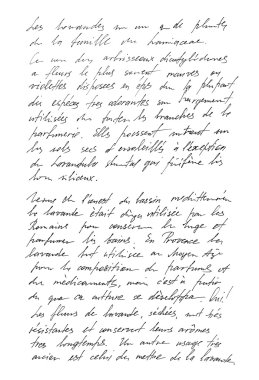 Les lavandes sont un g. de plantes
de la famille des lamiaceae.
Ce sont des arbrisseaux dicotylédones
à fleurs le plus souvent mauves ou
violettes disposées en épis dont la plupart
des espèces, très odorantes sont largement
utilisées dans toutes les branches de la
parfumerie. Elles poussent surtout sur
les sols secs et ensoleillés à l'exception
de Lavandula qui préfère les
sols siliceux.
Venue de l'ouest du bassin méditerranéen
la lavande était utilisée par les
Romains pour conserver le linge et
parfumer les bains. En Provence la
lavande fut utilisée au Moyen Age
pour la composition de parfums et
de médicaments, mais c'est à partir
du que sa culture se développa.
Les fleurs de lavande, séchées sont très
résistantes et conservent leurs arômes
très longtemps. Un autre usage très
ancien est celui de mettre de la lavande